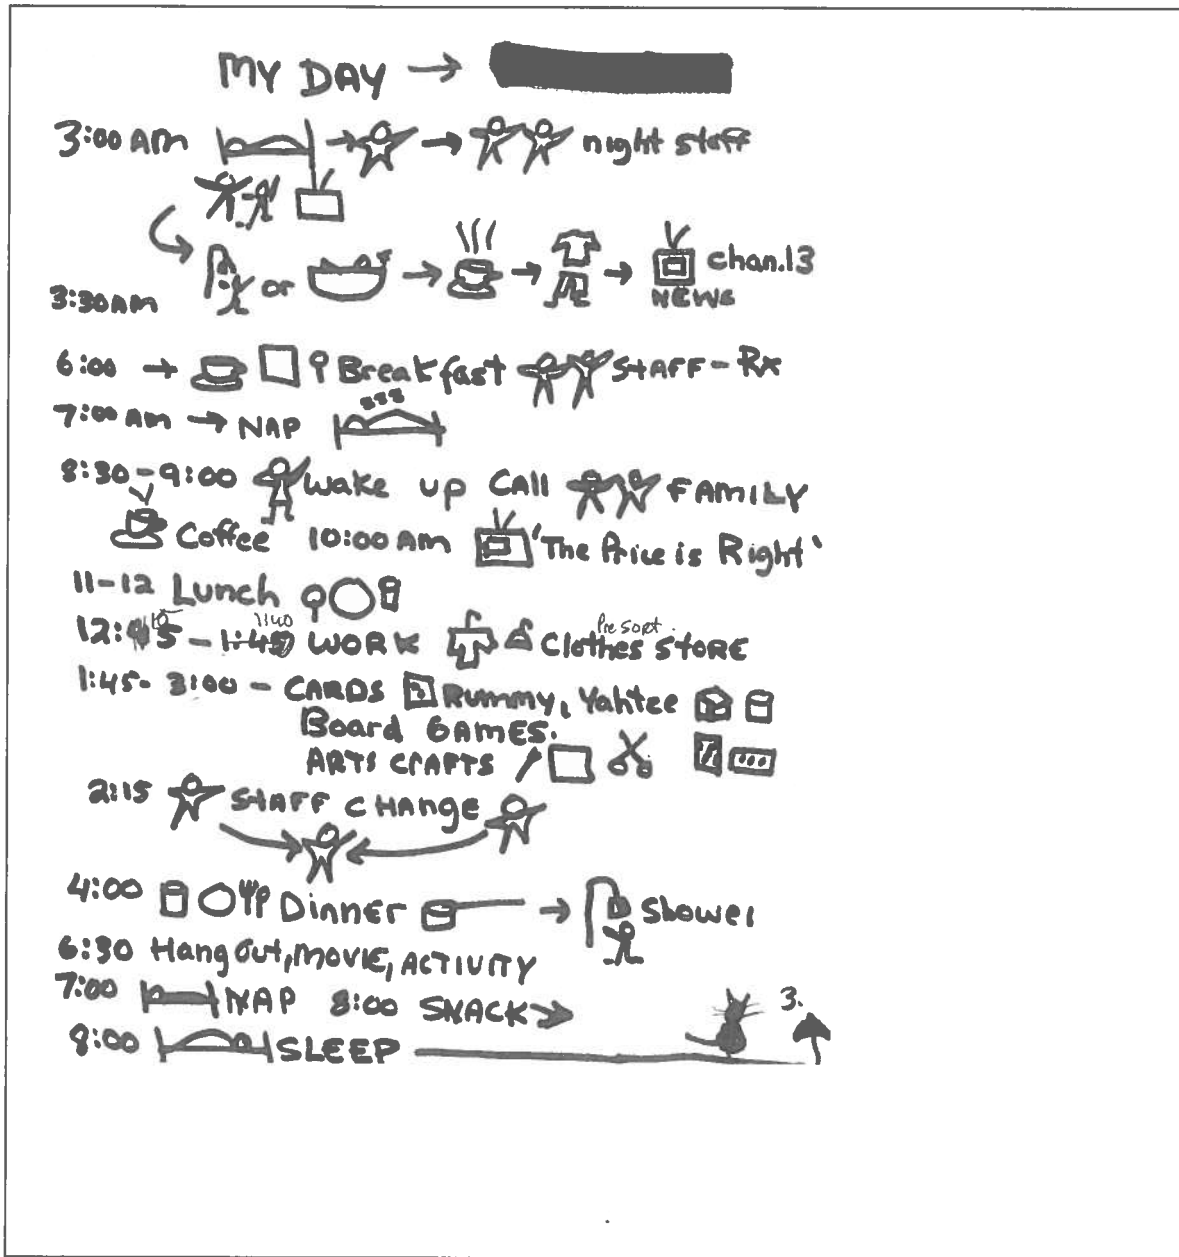 MY DAY →
3:00 AM → → night staff
or → → → chan.13
3:30 AM NEWS
6:00 → Breakfast STAFF - Rx
7:00 AM → NAP zzz
8:30 - 9:00 wake up call FAMILY
Coffee 10:00 AM 'The Price is Right'
11-12 Lunch
10 1:40 Pre sort
12:45 - 1:45 WORK Clothes STORE
1:45- 3:00 - CARDS Rummy, Yahtee
Board GAMES.
ARTS CRAFTS
2:15 STAFF CHANGE
4:00 Dinner → Shower
6:30 Hang Out, MOVIE, ACTIVITY
7:00 NAP 8:00 SNACK →
8:00 SLEEP 3.